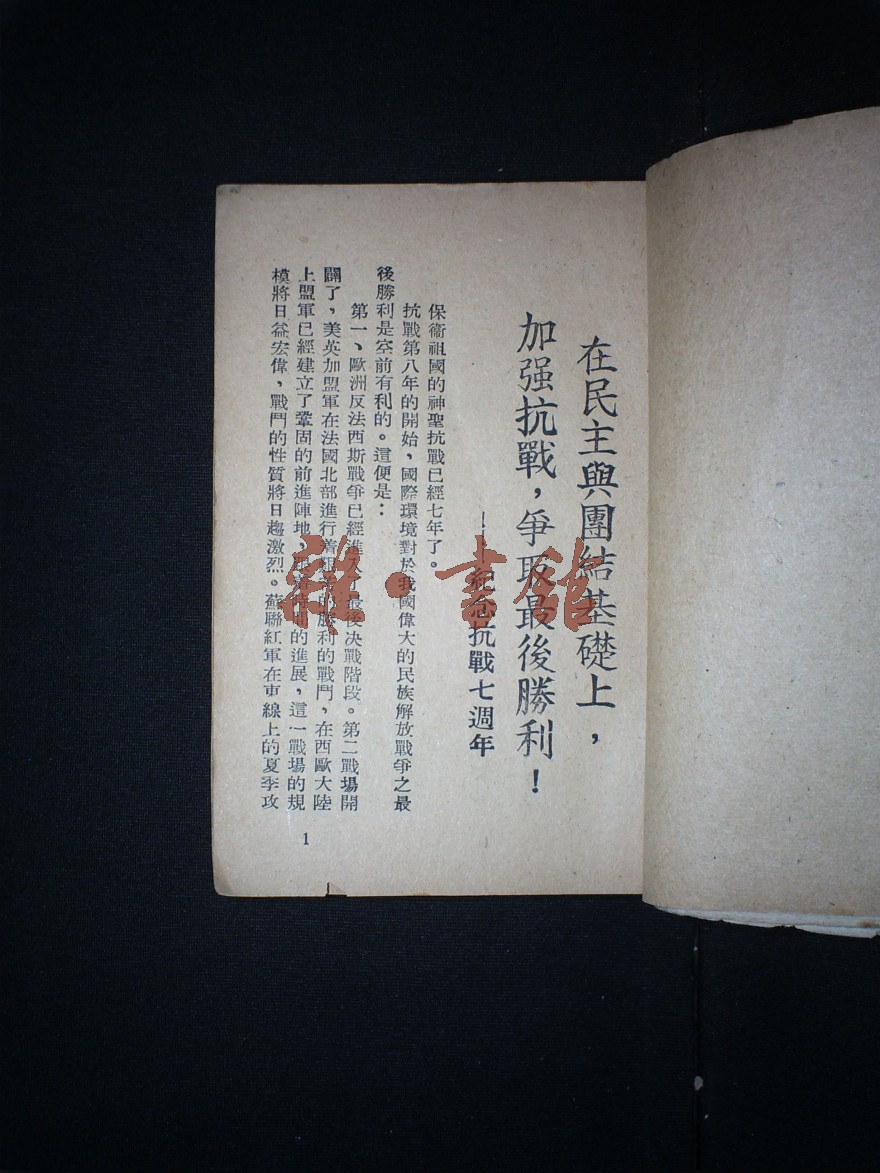 在民主與團結基礎上，
加强抗戰，爭取最後勝利！
——紀念抗戰七週年
保衛祖國的神聖抗戰已經七年了。
抗戰第八年的開始，國際環境對於我國偉大的民族解放戰爭之最
後勝利是空前有利的。這便是：
第一、歐洲反法西斯戰爭已經進入了最後決戰階段。第二戰場開
闢了，美英加盟軍在法國北部進行着的勝利的戰鬥，在西歐大陸
上盟軍已經建立了鞏固的前進陣地，時間的進展，這一戰場的規
模將日益宏偉，戰鬥的性質將日趨激烈。蘇聯紅軍在東線上的夏季攻
1
雜·書館